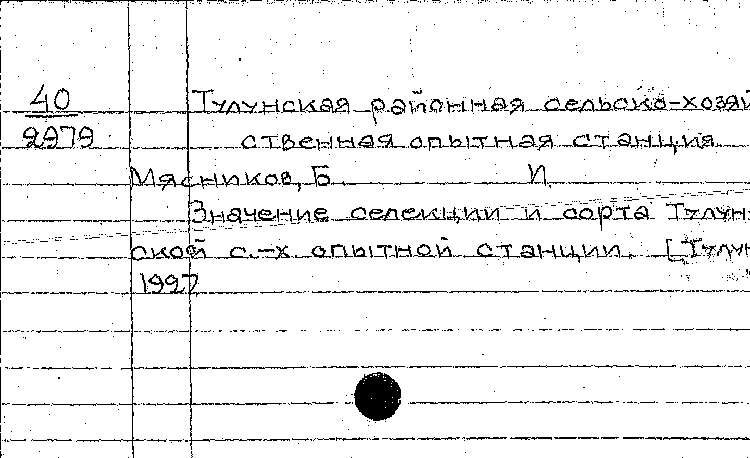 40
2979
Тулунская районная сельско-хозяй
ственная опытная станция
Мясников, Б И
Значение селекции и сорта Тулун-
ской с.-х. опытной станции. [Тулун
1927